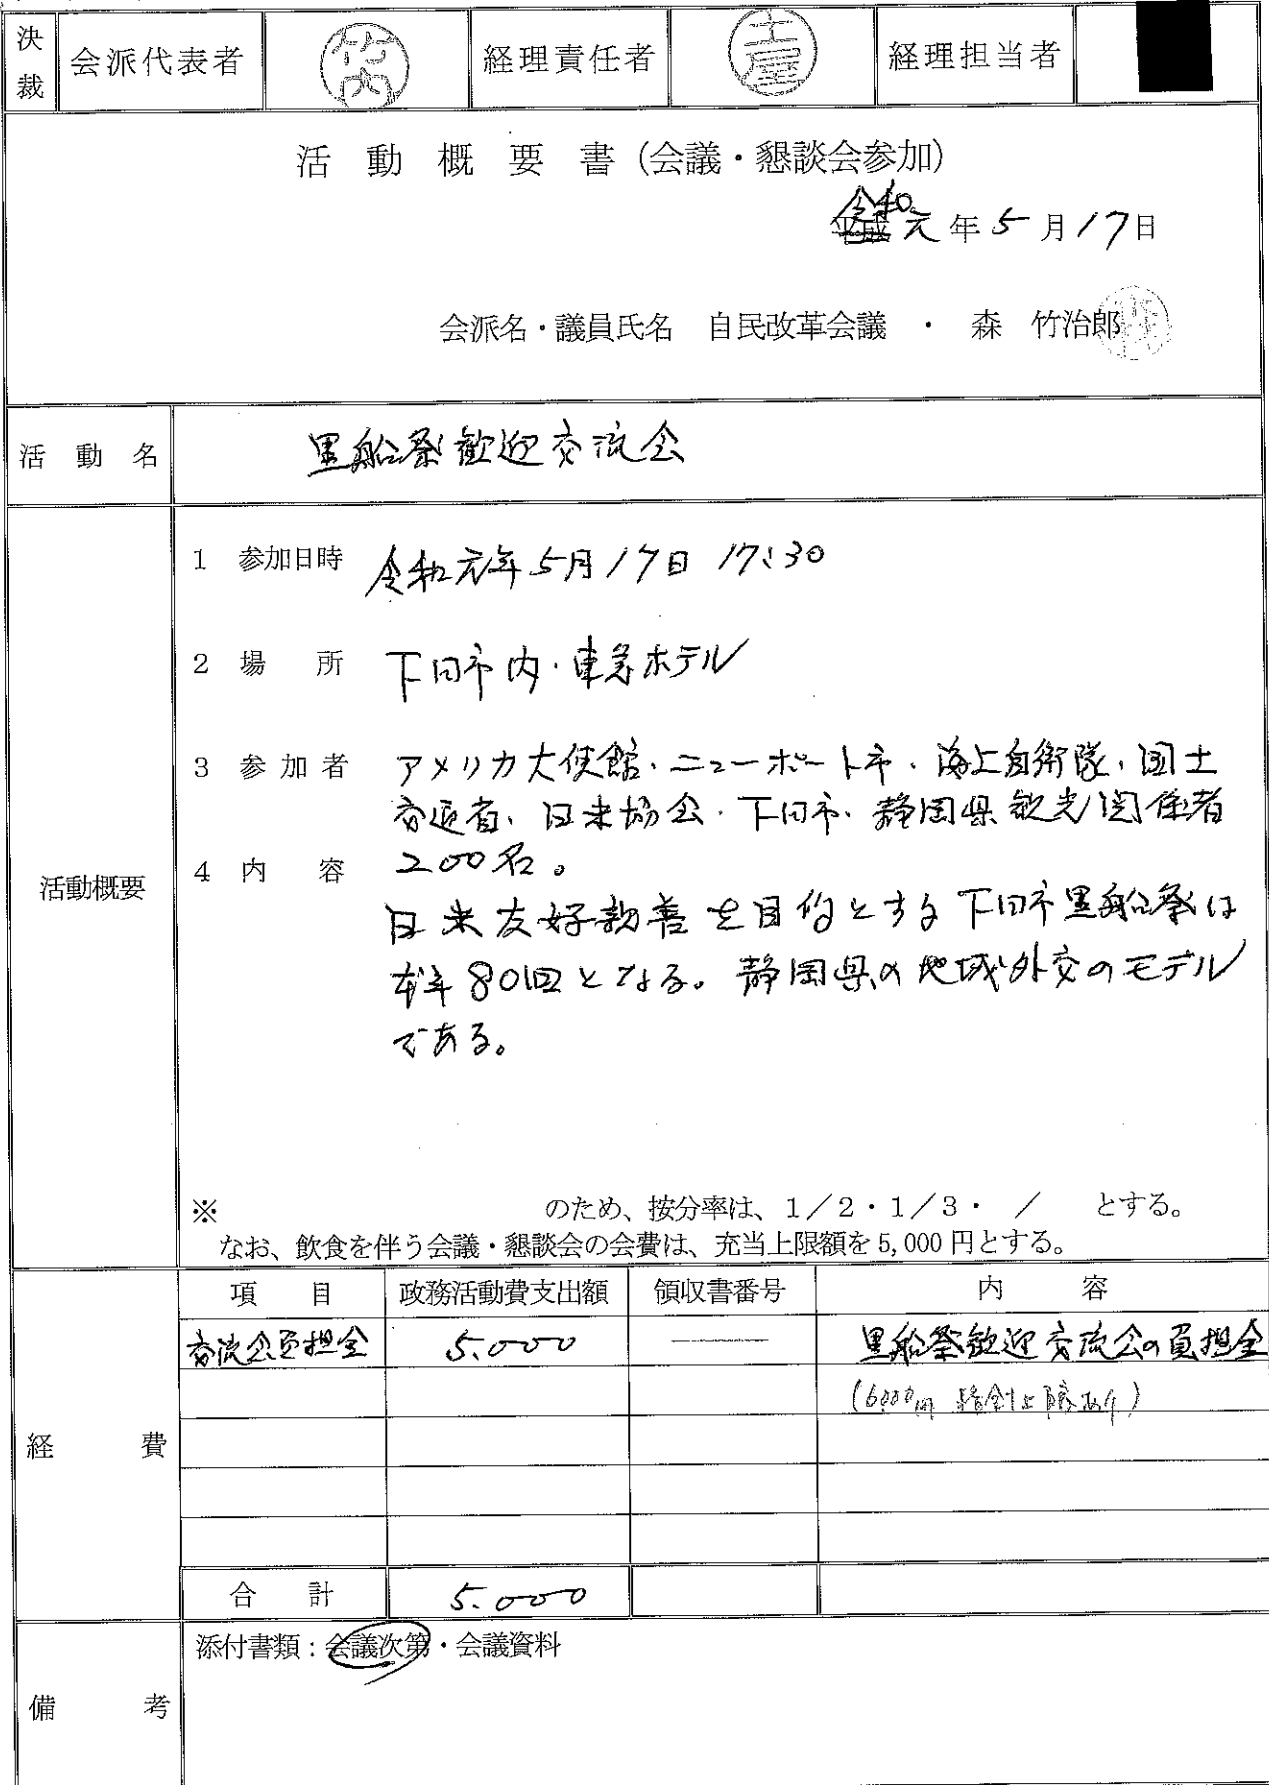 決裁 会派代表者 竹内 経理責任者 土屋 経理担当者
活動概要書(会議・懇談会参加)
令和
平成元年5月17日
会派名・議員氏名 自民改革会議 ・ 森 竹治郎
活動名 黒船祭歓迎交流会
1 参加日時 令和元年5月17日 17:30
2 場所 下田市内・東急ホテル
3 参加者 アメリカ大使館・ニューポート市・海上自衛隊・国土
交通省、日米協会・下田市・静岡県観光関係者
200名。
4 内容
日米友好親善を目的とする下田市黒船祭は
本年80回となる。静岡県の地域外交のモデル
である。
活動概要
※ のため、按分率は、1/2・1/3・ / とする。
なお、飲食を伴う会議・懇談会の会費は、充当上限額を5,000円とする。
項目 政務活動費支出額 領収書番号 内容
交流会負担金 5.000 ― 黒船祭歓迎交流会の負担金
(6000円
経費
合計 5.000
添付書類:会議次第・会議資料
備考